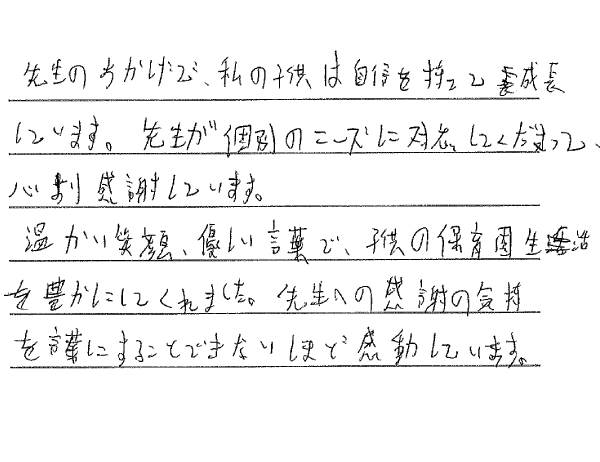 先生のおかげで、私の子供は自信を持って成長
しています。先生が個別のニーズに対応してくださって、
心より感謝しています。
温かい笑顔、優しい言葉で、子供の保育園生活
を豊かにしてくれました。先生への感謝の気持
を言葉にすることできないほど感動しています。